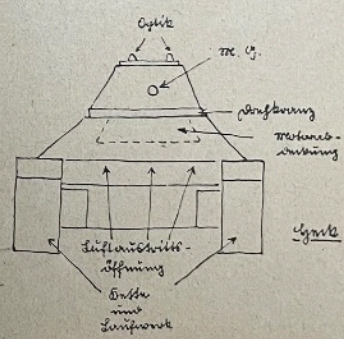 Optik
M. G.
Drehkranz
Motorab-
deckung
Heck
Luftaustritts-
öffnung
Kette
und
Laufwerk